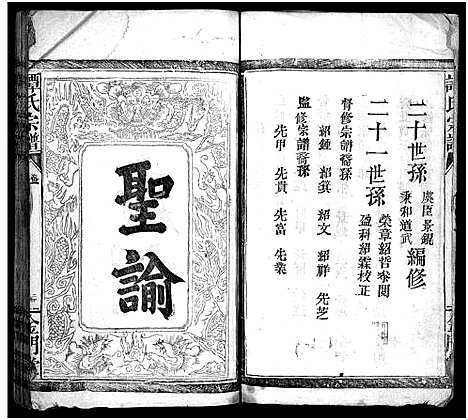 二十世孫
虞臣景錕
秉和道武
編修
二十一世孫
榮章紹哲叅閱
盈科紹霖校正
督修宗譜裔孫
紹鍾 紹箕 紹文 紹祥 先芝
監修宗譜裔孫
先甲 先貴 先富 先業
聖諭
譚氏宗譜